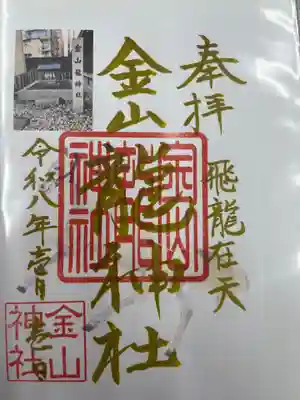 奉拝
飛龍在天
金山龍神社
令和八年壱月壱日
金山龍神社
金山
神社